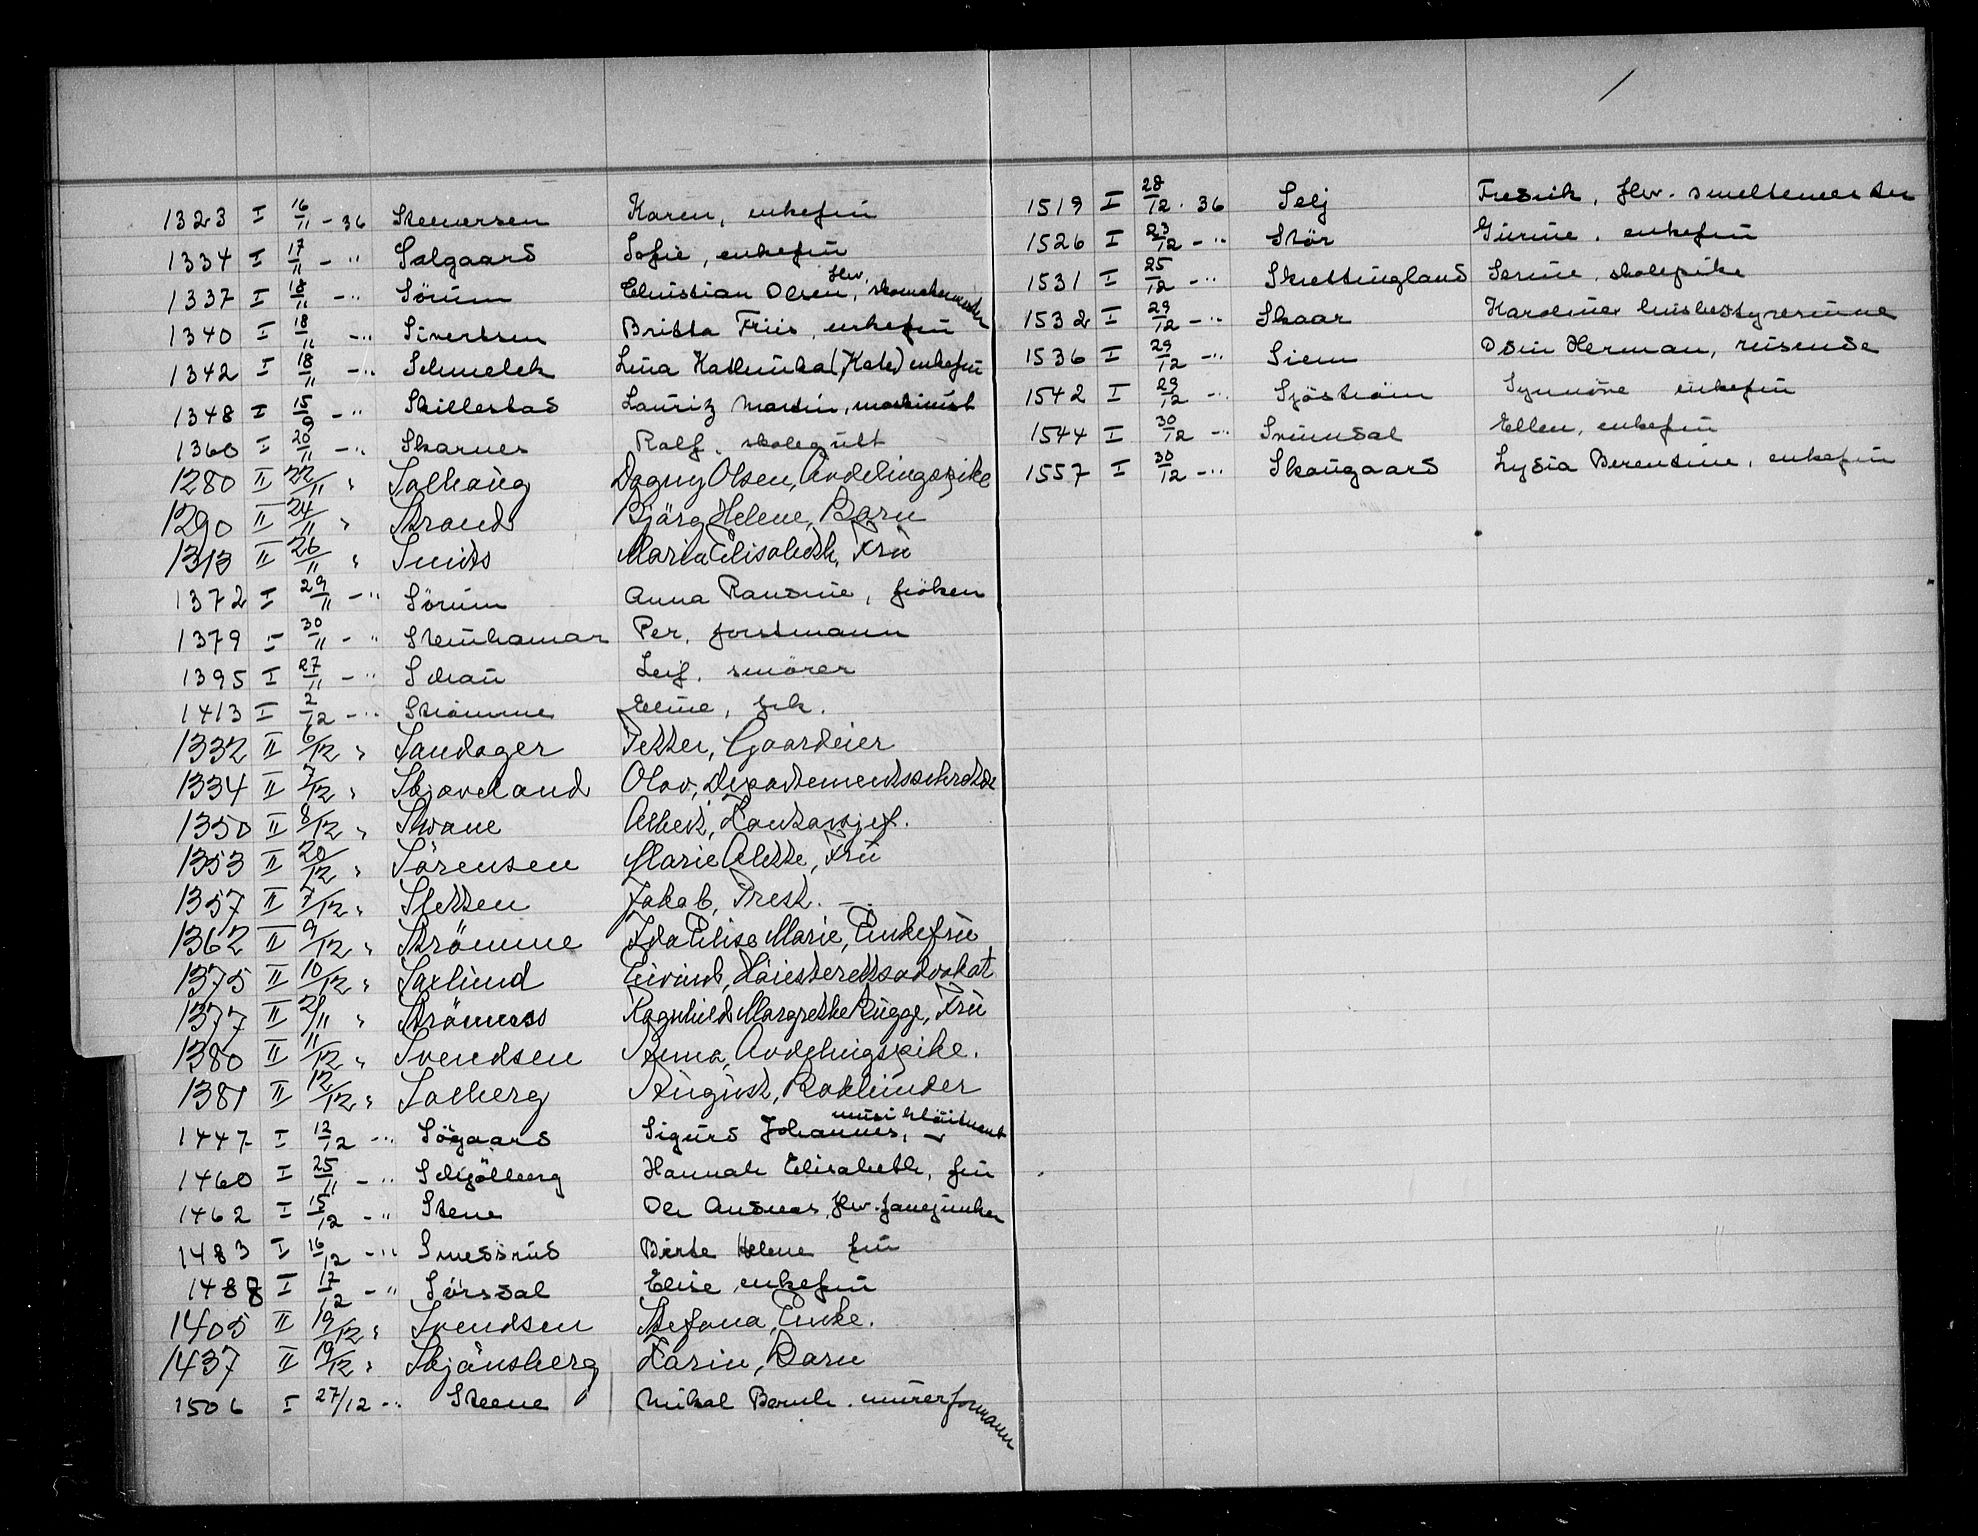 1323 I 16/11 - 36 Steenersen Karen, enkefrü
1334 I 17/11 - " Solgaard Sofie, enkefrü
1337 I 18/11 - " Sörum Christian Olsen, fhv. skomakermester
1340 I 18/11 - " Sivertsen Britta Friis, enkefrü
1342 I 18/11 - " Schmelck Lina Kathinka (Kate) enkefrü
1348 I 15/9 - " Skillestad Lauritz Martin, maskinist
1360 I 20/11 - " Skarnes Rolf, skolegutt
1280 II 22/11 " Solhaüg Dagny Olsen, Avdelingspike
1290 II 24/11 " Strand Björg Helene, Barn
1313 II 26/11 " Smits Maria Elisabeth, Frü
1372 I 29/11 - " Sörüm Anna Randine, fröken
1379 I 30/11 - " Steinhamar Per, forstmann
1395 I 27/11 - " Schau Leif, smörer
1413 I 2/12 - " Strömme Eline, frk.
1332 II 6/12 " Sandager Petter, Gaardeier
1334 II 7/12 " Skjæveland Olav, Departementssekretær
1350 II 8/12 " Svane Albert, Kontorsjef.
1353 II 20/12 " Sörensen Marie Alette, Frü
1357 II 7/12 " Sletten Jakob, Prest. -
1362 II 9/12 " Strömme Ida Elise Marie, Enkefrü
1375 II 10/12 " Saxlund Eivind, Höiesterettsadvokat
1377 II 20/11 " Strömness Ragnhild Margrethe Bügge, Frü
1380 II 11/12 " Svendsen Anna, Avdelingspike.
1381 II 12/12 " Solberg Aügüst, Bokbinder
1447 I 12/12 - " Sögaard Sigurd Johannes, musiklöitnant
1460 I 25/11 - " Schjölberg Hannah Elisabeth, frü
1462 I 15/12 - " Stene Ole Andreas, fhv. fanejunker
1483 I 16/12 - " Smedsrud Birte Helene frü
1488 I 17/12 - " Sörsdal Elise enkefrü
1405 II 19/12 " Svendsen Stefana, Enke.
1437 II 19/12 " Skjönsberg Karin, Barn
1506 I 27/12 - " Steene Mikal Bernh. mürerformann
1519 I 28/12 - 36 Selj Fredrik, fhv. smeltemester
1526 I 23/12 - " Stör Gürine, enkefrü
1531 I 25/12 - " Skrettingland Serine, skolepike
1532 I 29/12 - " Skaar Karoline, husbestyrerinne
1536 I 29/12 - " Siem Odin Herman, reisende
1542 I 29/12 - " Sjöström Synnöve enkefrü
1544 I 30/12 - " Svinndal Ellen, enkefrü
1557 I 30/12 - " Skaugaard Lydia Berentine, enkefrü